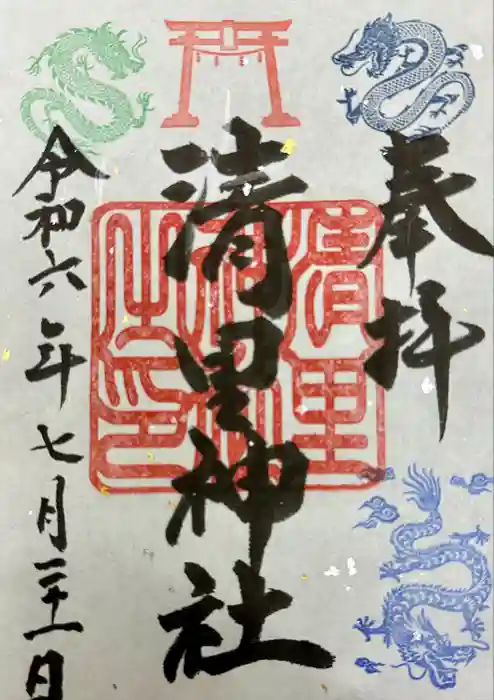 奉拝
清里神社
清里神社之印
令和六年七月二十一日